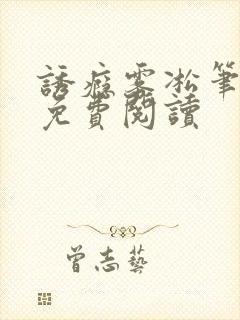 誘癮霧凇筆
免費閱讀
曾志藝